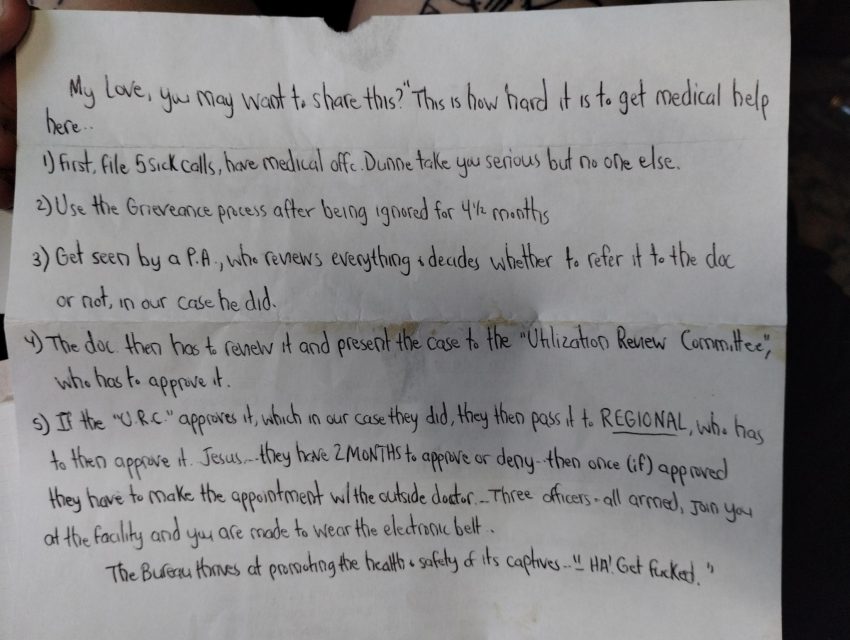 My Love, you may want to share this? "This is how hard it is to get medical help
here..
1) First, file 5 sick calls, have medical offc. Dunne take you serious but no one else.
2) Use the Grieveance process after being ignored for 4 1/2 months
3) Get seen by a P.A., who reviews everything & decides whether to refer it to the doc
or not, in our case he did.
4) The doc. then has to review it and present the case to the "Utilization Review Committee",
who has to approve it.
5) If the "U.R.C." approves it, which in our case they did, they then pass it to REGIONAL, who has
to then approve it. Jesus...they have 2 MONTHS to approve or deny - then once (if) approved
they have to make the appointment w/ the outside doctor... Three officers - all armed, join you
at the facility and you are made to wear the electronic belt..
The Bureau thrives at promoting the health & safety of its captives..!! HA! Get fucked."